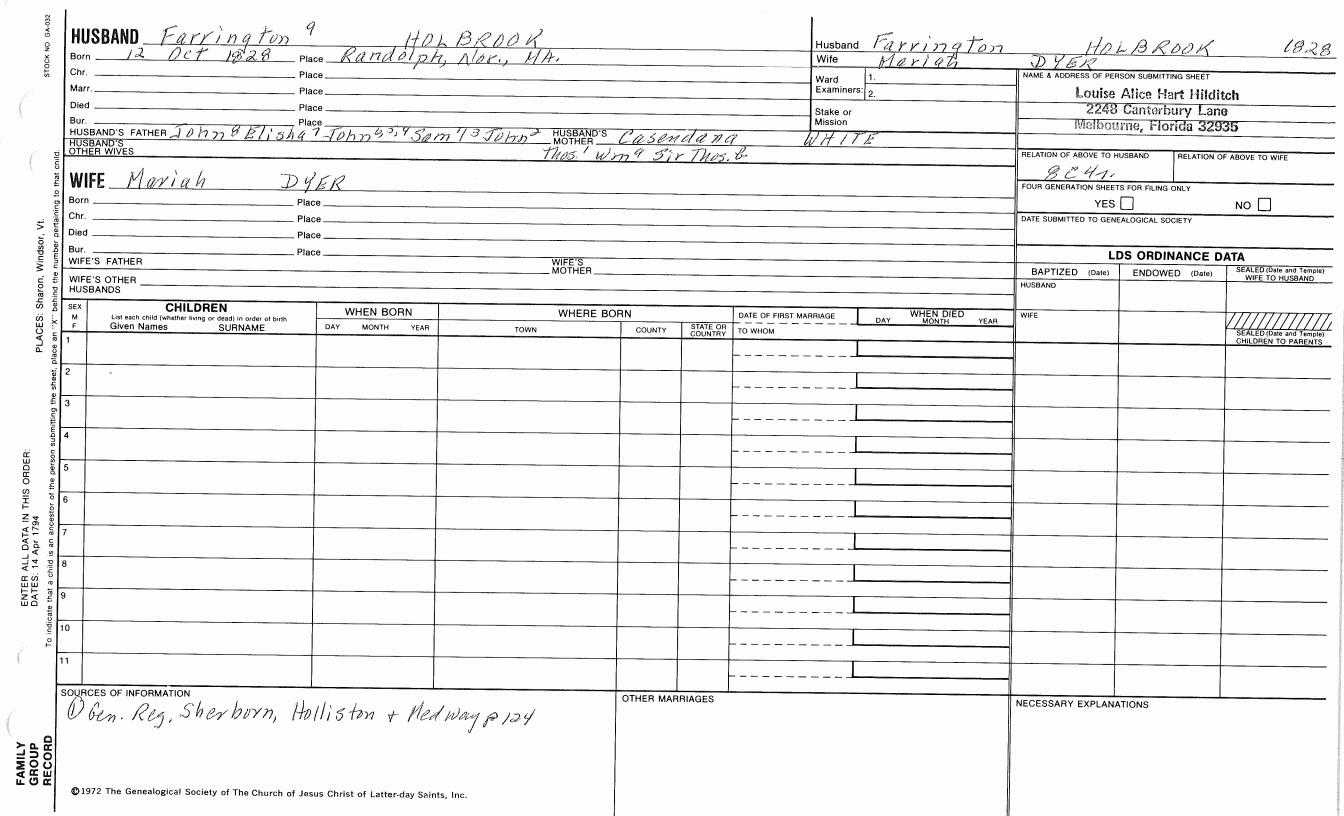 STOCK NO GA-032
HUSBAND Farrington 9 HOLBROOK
Born 12 Oct 1828 Place Randolph, Nor., MA.
Chr. Place
Marr. Place
Died Place
Bur. Place
HUSBAND'S FATHER John 8 Elisha 7 John 6,5,4 Sam 4,3 John 2 HUSBAND'S MOTHER Casendana WHITE
HUSBAND'S OTHER WIVES Thos. 1 Wm a Sir Thos. b
WIFE Mariah DYER
Born Place
Chr. Place
Died Place
Bur. Place
WIFE'S FATHER WIFE'S MOTHER
WIFE'S OTHER HUSBANDS
Husband Farrington HOLBROOK 1828
Wife Mariah DYER
Ward Examiners: 1.
2.
Stake or Mission
NAME & ADDRESS OF PERSON SUBMITTING SHEET
Louise Alice Hart Hilditch
2248 Canterbury Lane
Melbourne, Florida 32935
RELATION OF ABOVE TO HUSBAND RELATION OF ABOVE TO WIFE
8C4r.
FOUR GENERATION SHEETS FOR FILING ONLY
YES NO
DATE SUBMITTED TO GENEALOGICAL SOCIETY
LDS ORDINANCE DATA
BAPTIZED (Date) ENDOWED (Date) SEALED (Date and Temple) WIFE TO HUSBAND
HUSBAND
WIFE
SEALED (Date and Temple) CHILDREN TO PARENTS
SEX M F
CHILDREN
List each child (whether living or dead) in order of birth
Given Names SURNAME
WHEN BORN
DAY MONTH YEAR
WHERE BORN
TOWN COUNTY STATE OR COUNTRY
DATE OF FIRST MARRIAGE
TO WHOM
WHEN DIED
DAY MONTH YEAR
1
2
3
4
5
6
7
8
9
10
11
SOURCES OF INFORMATION
① Gen. Reg. Sherborn, Holliston + Medway p 124
OTHER MARRIAGES
NECESSARY EXPLANATIONS
©1972 The Genealogical Society of The Church of Jesus Christ of Latter-day Saints, Inc.
PLACES: Sharon, Windsor, Vt.
ENTER ALL DATA IN THIS ORDER:
DATES: 14 Apr 1794
To indicate that a child is an ancestor of the person submitting the sheet, place an "X" behind the number pertaining to that child.
FAMILY
GROUP
RECORD